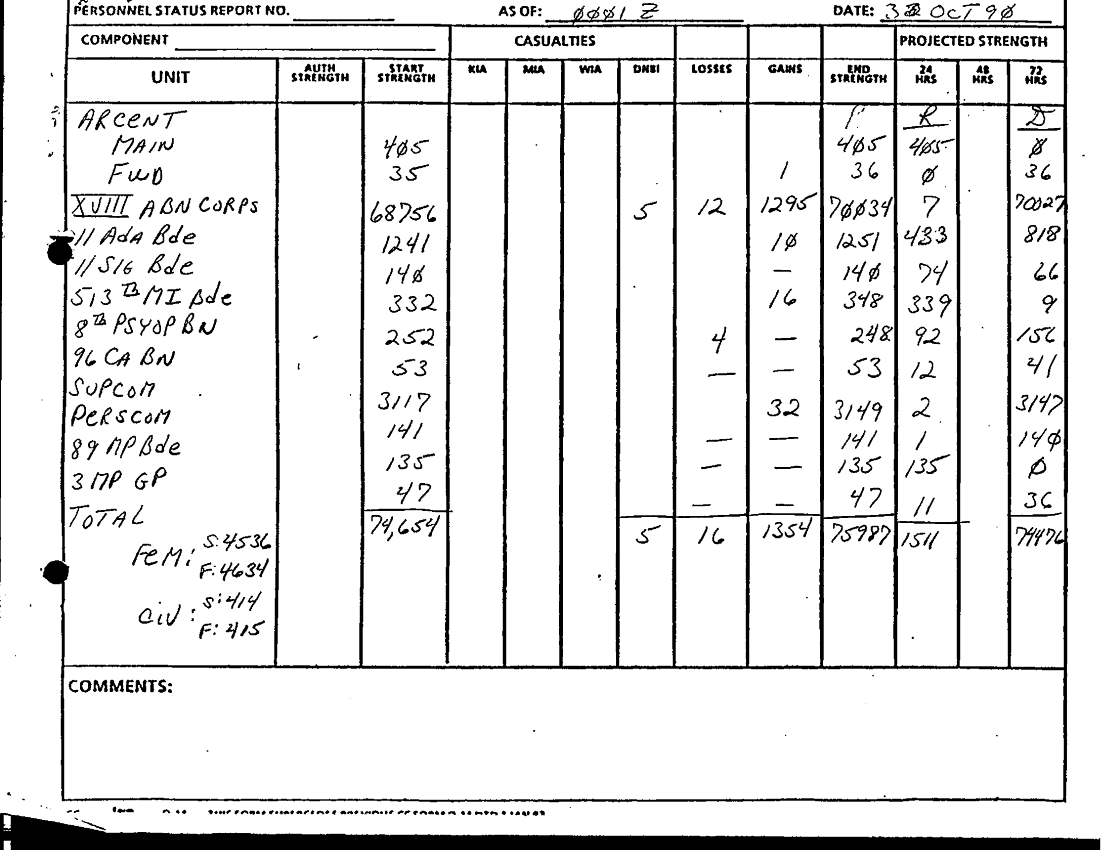 PERSONNEL STATUS REPORT NO. AS OF: 0001 Z DATE: OCT 90
COMPONENT CASUALTIES PROJECTED STRENGTH
UNIT AUTH STRENGTH START STRENGTH KIA MIA WIA DNBI LOSSES GAINS END STRENGTH 24 HRS 48 HRS 72 HRS
ARCENT R D
MAIN 405 405 405 0
FWD 35 1 36 0 36
XVIII ABN CORPS 68756 5 12 1295 70034 7 70027
11 ADA Bde 1241 10 1251 433 818
11 SIG Bde 140 — 140 74 66
513 TH MI Bde 332 16 348 339 9
8 TH PSYOP BN 252 4 — 248 92 156
96 CA BN 53 — — 53 12 41
SUPCOM 3117 32 3149 2 3147
PERSCOM 141 — — 141 1 140
89 MP Bde 135 — — 135 135 0
3 MP GP 47 — — 47 11 36
TOTAL 74,654 5 16 1354 75987 1511 74476
FEM: S:4536
F:4634
CIV: S:414
F:415
COMMENTS: